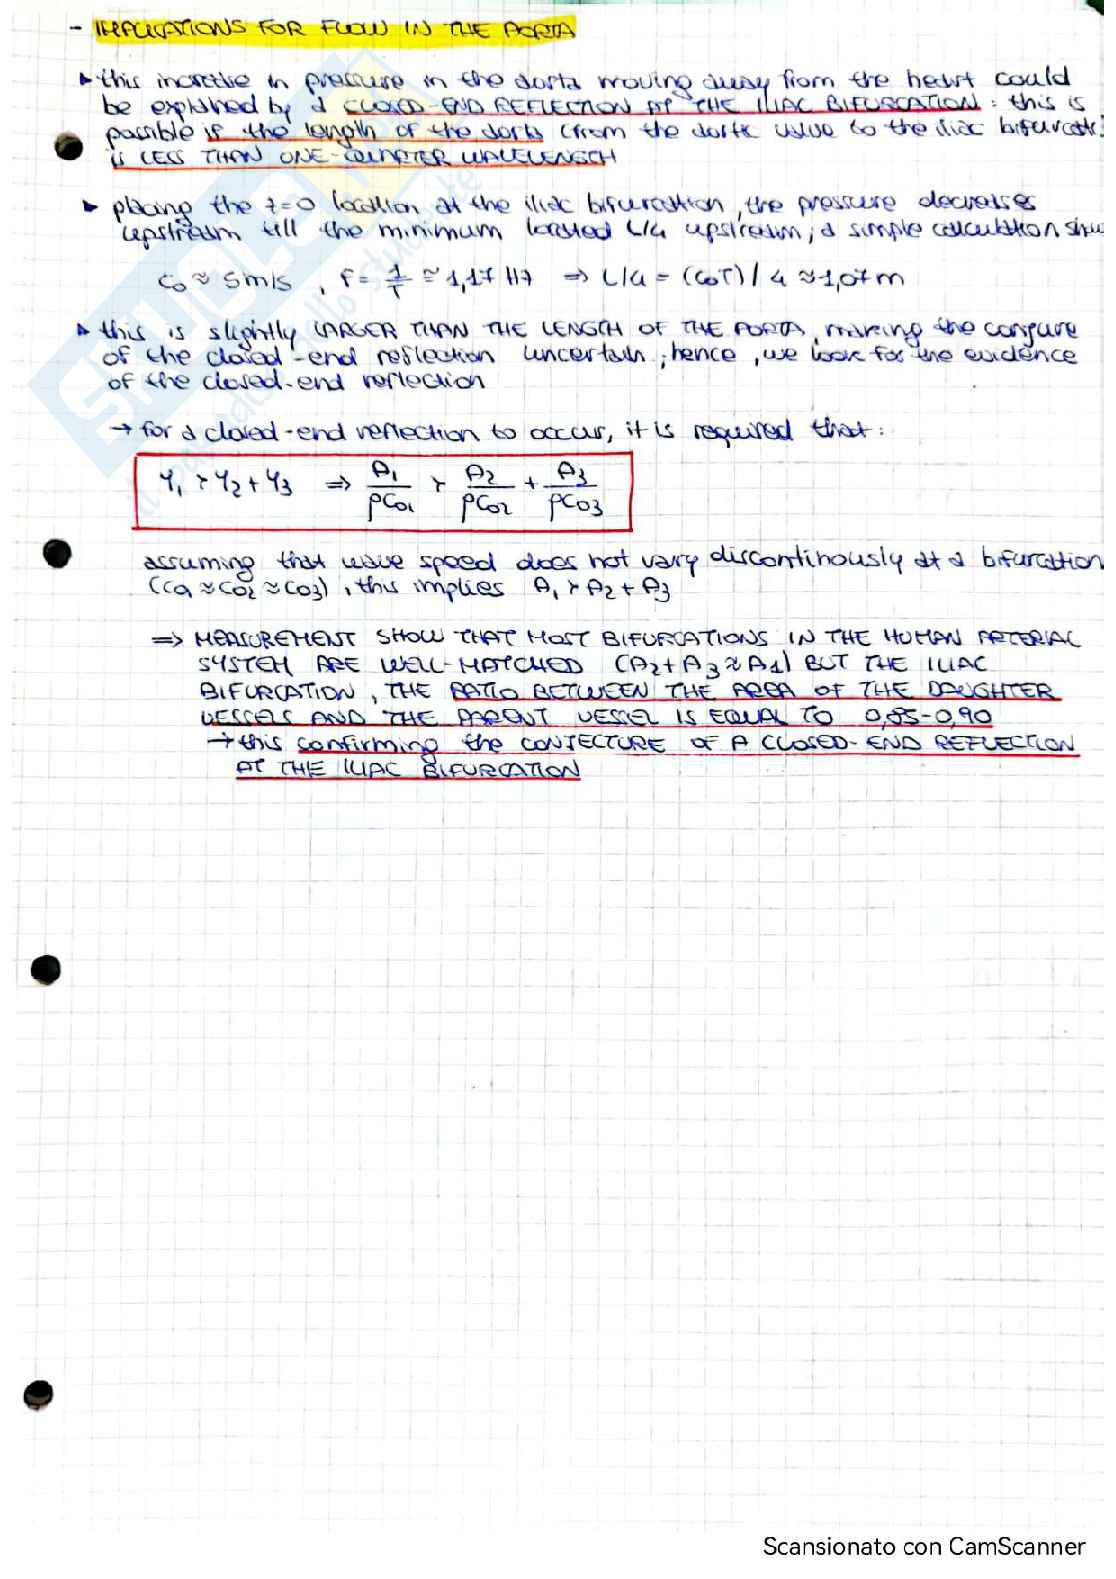 - IMPLICATIONS FOR FLOW IN THE AORTA
▸ this increase in pressure in the aorta moving away from the heart could
be explained by a CLOSED-END REFLECTION AT THE ILIAC BIFURCATION: this is
possible if the length of the aorta (from the aortic valve to the iliac bifurcat.
is LESS THAN ONE-QUARTER WAVELENGTH
▸ placing the z=0 location at the iliac bifurcation, the pressure decreases
upstream till the minimum located L/4 upstream; a simple calculation show
c₀ ≈ 5m/s , f = 1/T ≃ 1,17 Hz ⇒ L/4 = (c₀T)/4 ≈ 1,07m
▸ this is slightly LARGER THAN THE LENGTH OF THE AORTA, making the conjure
of the closed-end reflection uncertain; hence, we look for the evidence
of the closed-end reflection
→ for a closed-end reflection to occur, it is required that:
Y₁ > Y₂ + Y₃ ⇒ A₁/ρC₀₁ > A₂/ρC₀₂ + A₃/ρC₀₃
assuming that wave speed does not vary discontinously at a bifurcation
(C₀₁ ≈ C₀₂ ≈ C₀₃), this implies A₁ > A₂ + A₃
⇒ MEASUREMENT SHOW THAT MOST BIFURCATIONS IN THE HUMAN ARTERIAL
SYSTEM ARE WELL-MATCHED (A₂ + A₃ ≈ A₁) BUT THE ILIAC
BIFURCATION, THE RATIO BETWEEN THE AREA OF THE DAUGHTER
VESSELS AND THE PARENT VESSEL IS EQUAL TO 0,85-0,90
→ this confirming the CONJECTURE OF A CLOSED-END REFLECTION
AT THE ILIAC BIFURCATION
Scansionato con CamScanner